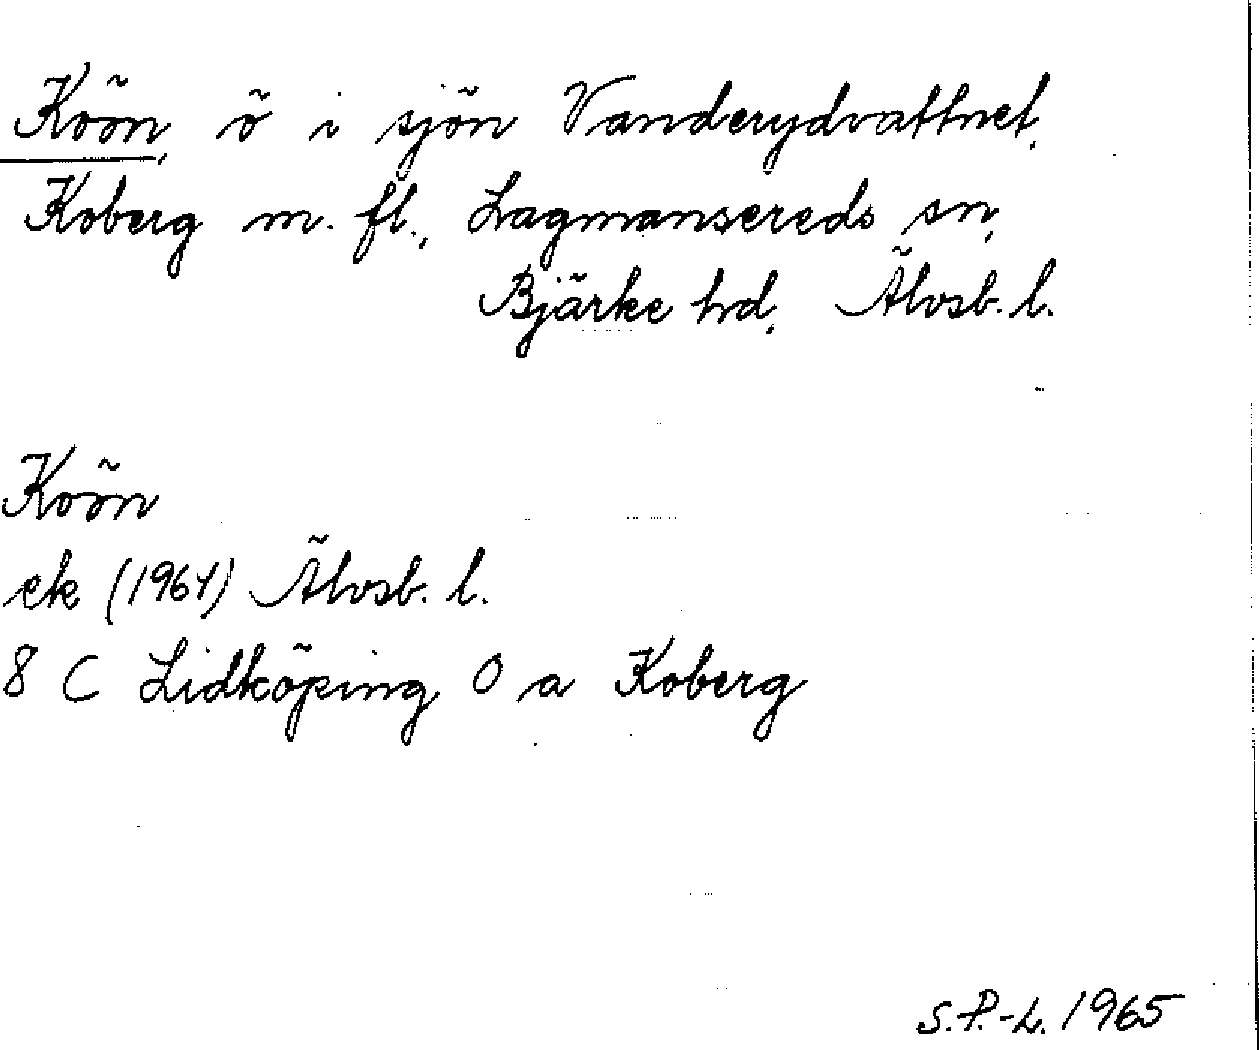 Koön, ö i sjön Vanderydvattnet,
Koberg m. fl., Lagmansereds sn,
Bjärke hd, Älvsb. l.
Koön
ek (1961) Älvsb. l.
8 C Lidköping 0 a Koberg
S.P.-L. 1965